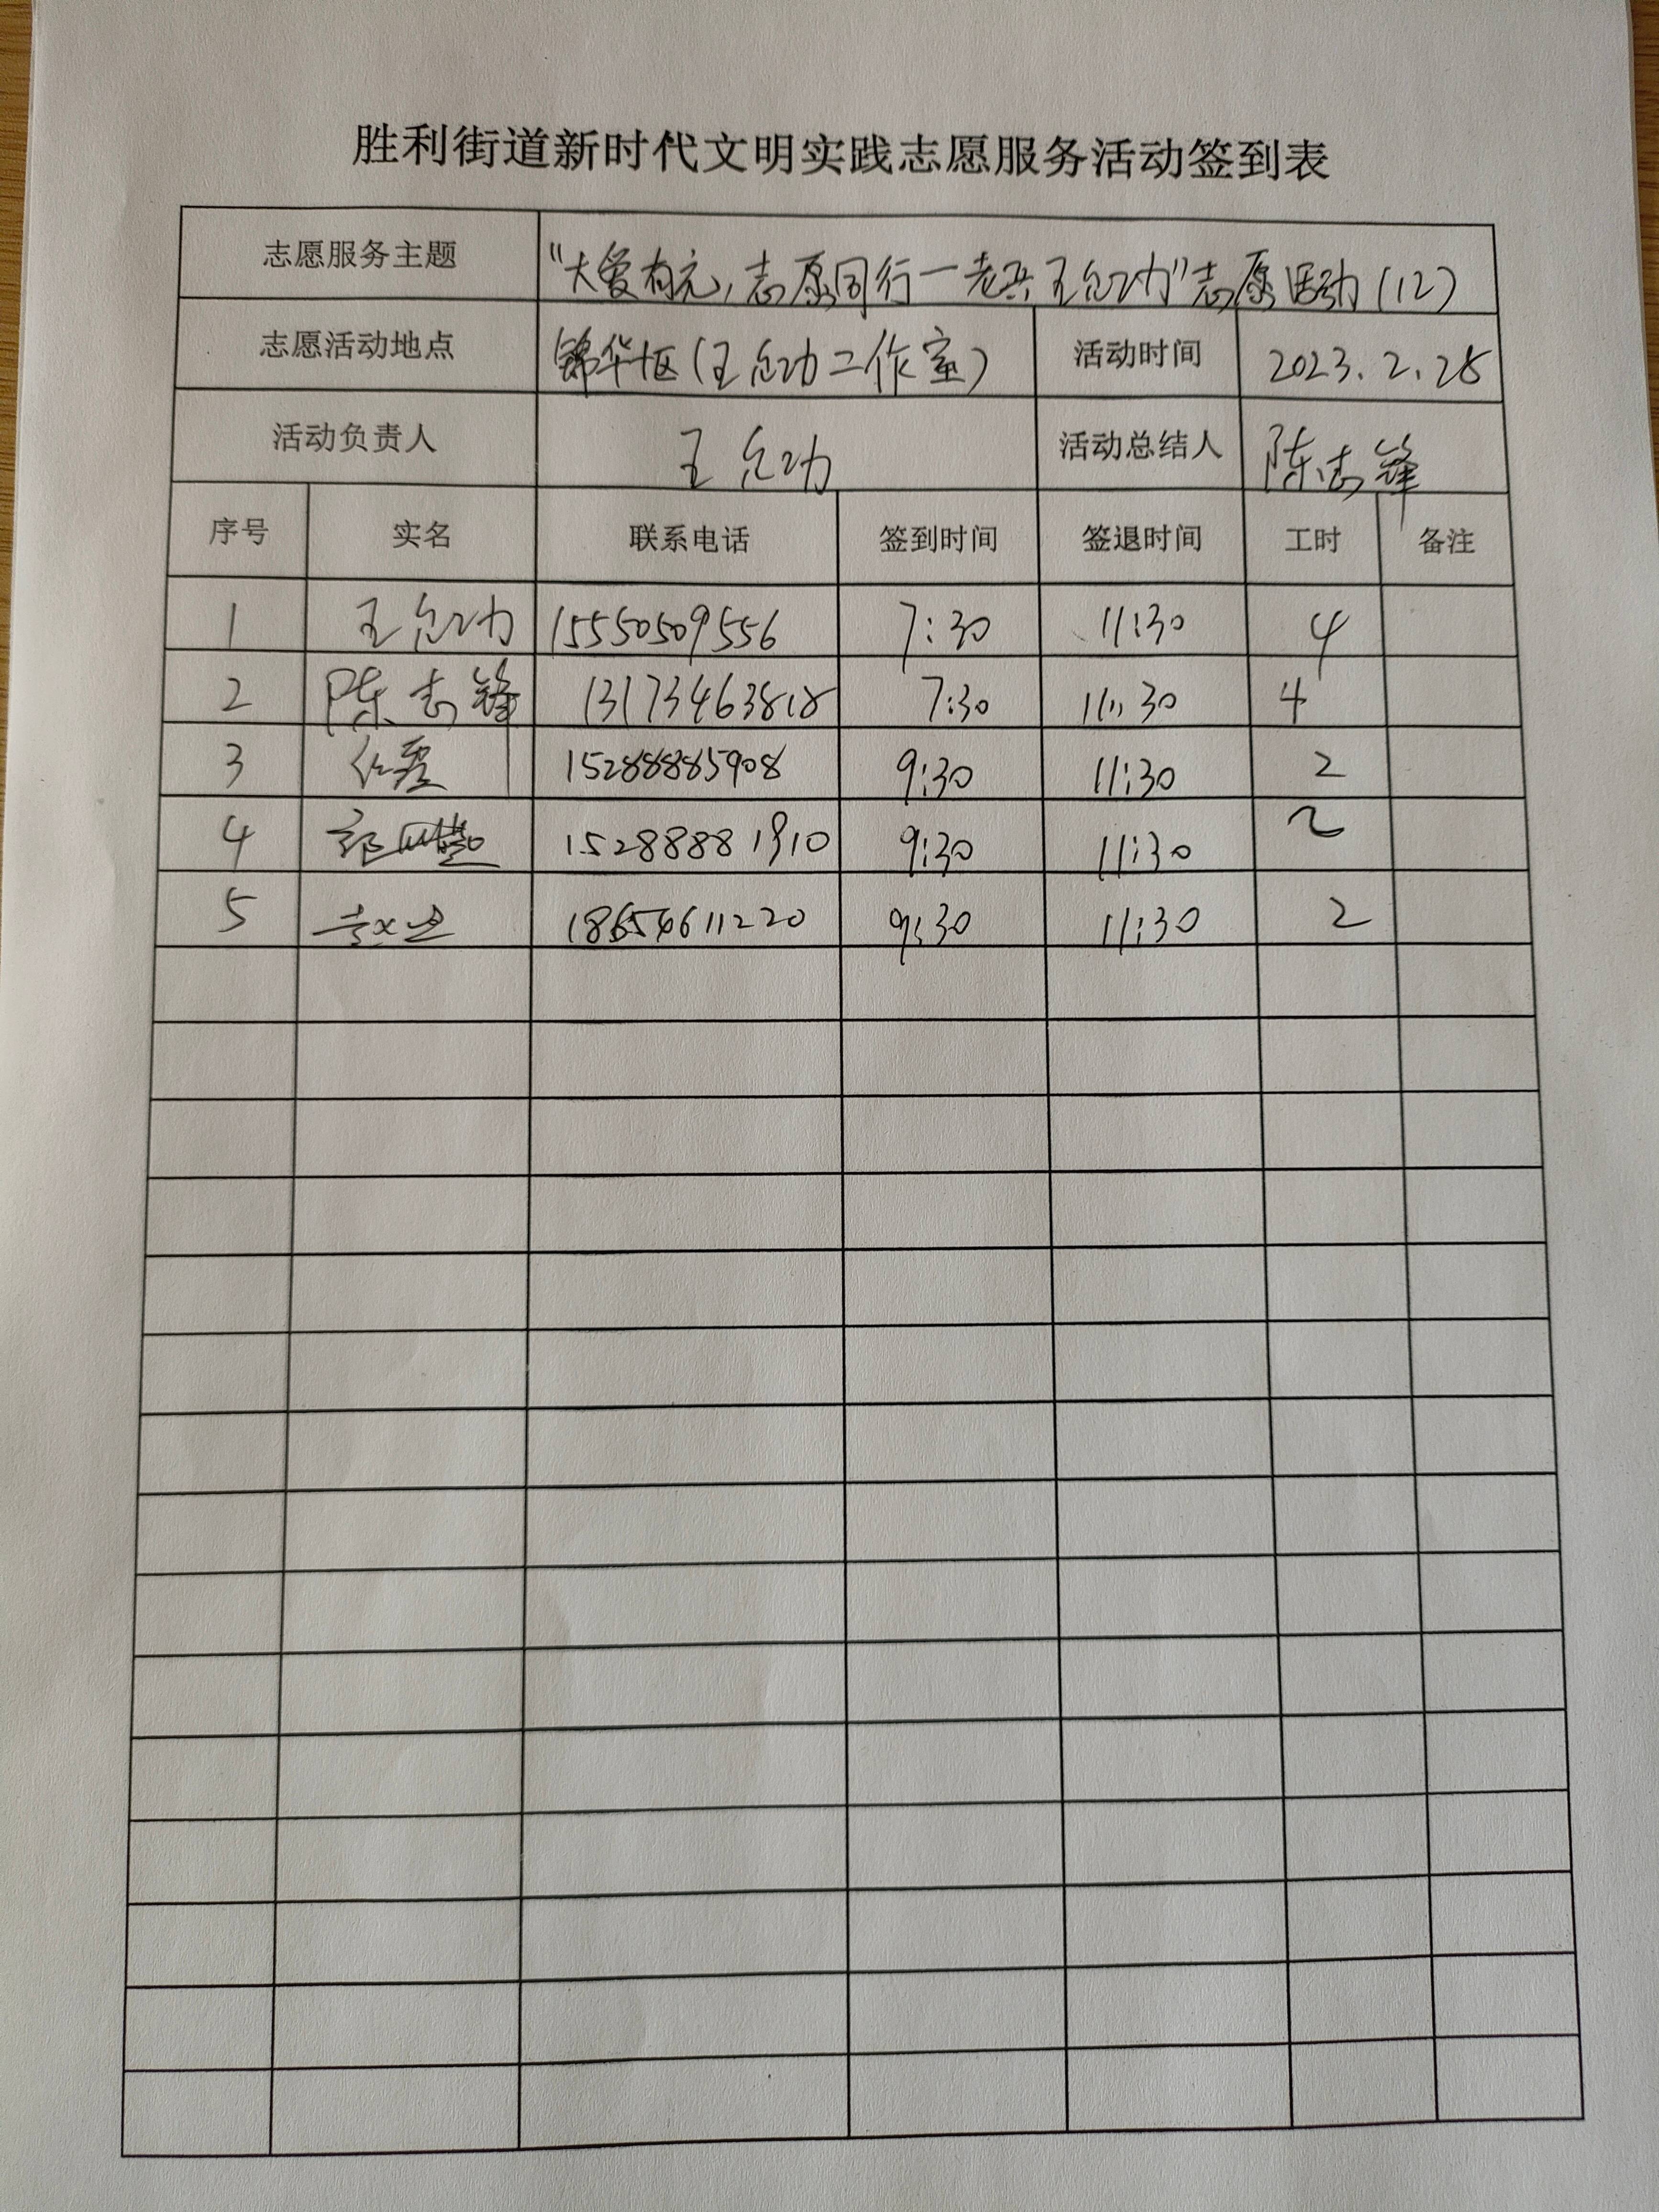 胜利街道新时代文明实践志愿服务活动签到表
志愿服务主题 "大爱有元,志愿同行一老兵王立功"志愿活动(12)
志愿活动地点 锦华区(王立功工作室) 活动时间 2023.2.28
活动负责人 王立功 活动总结人 陈志锋
序号 实名 联系电话 签到时间 签退时间 工时 备注
1 王立功 15550509556 7:30 11:30 4
2 陈志锋 13173463818 7:30 11:30 4
3 15288885908 9:30 11:30 2
4 15288881910 9:30 11:30 2
5 18654611220 9:30 11:30 2